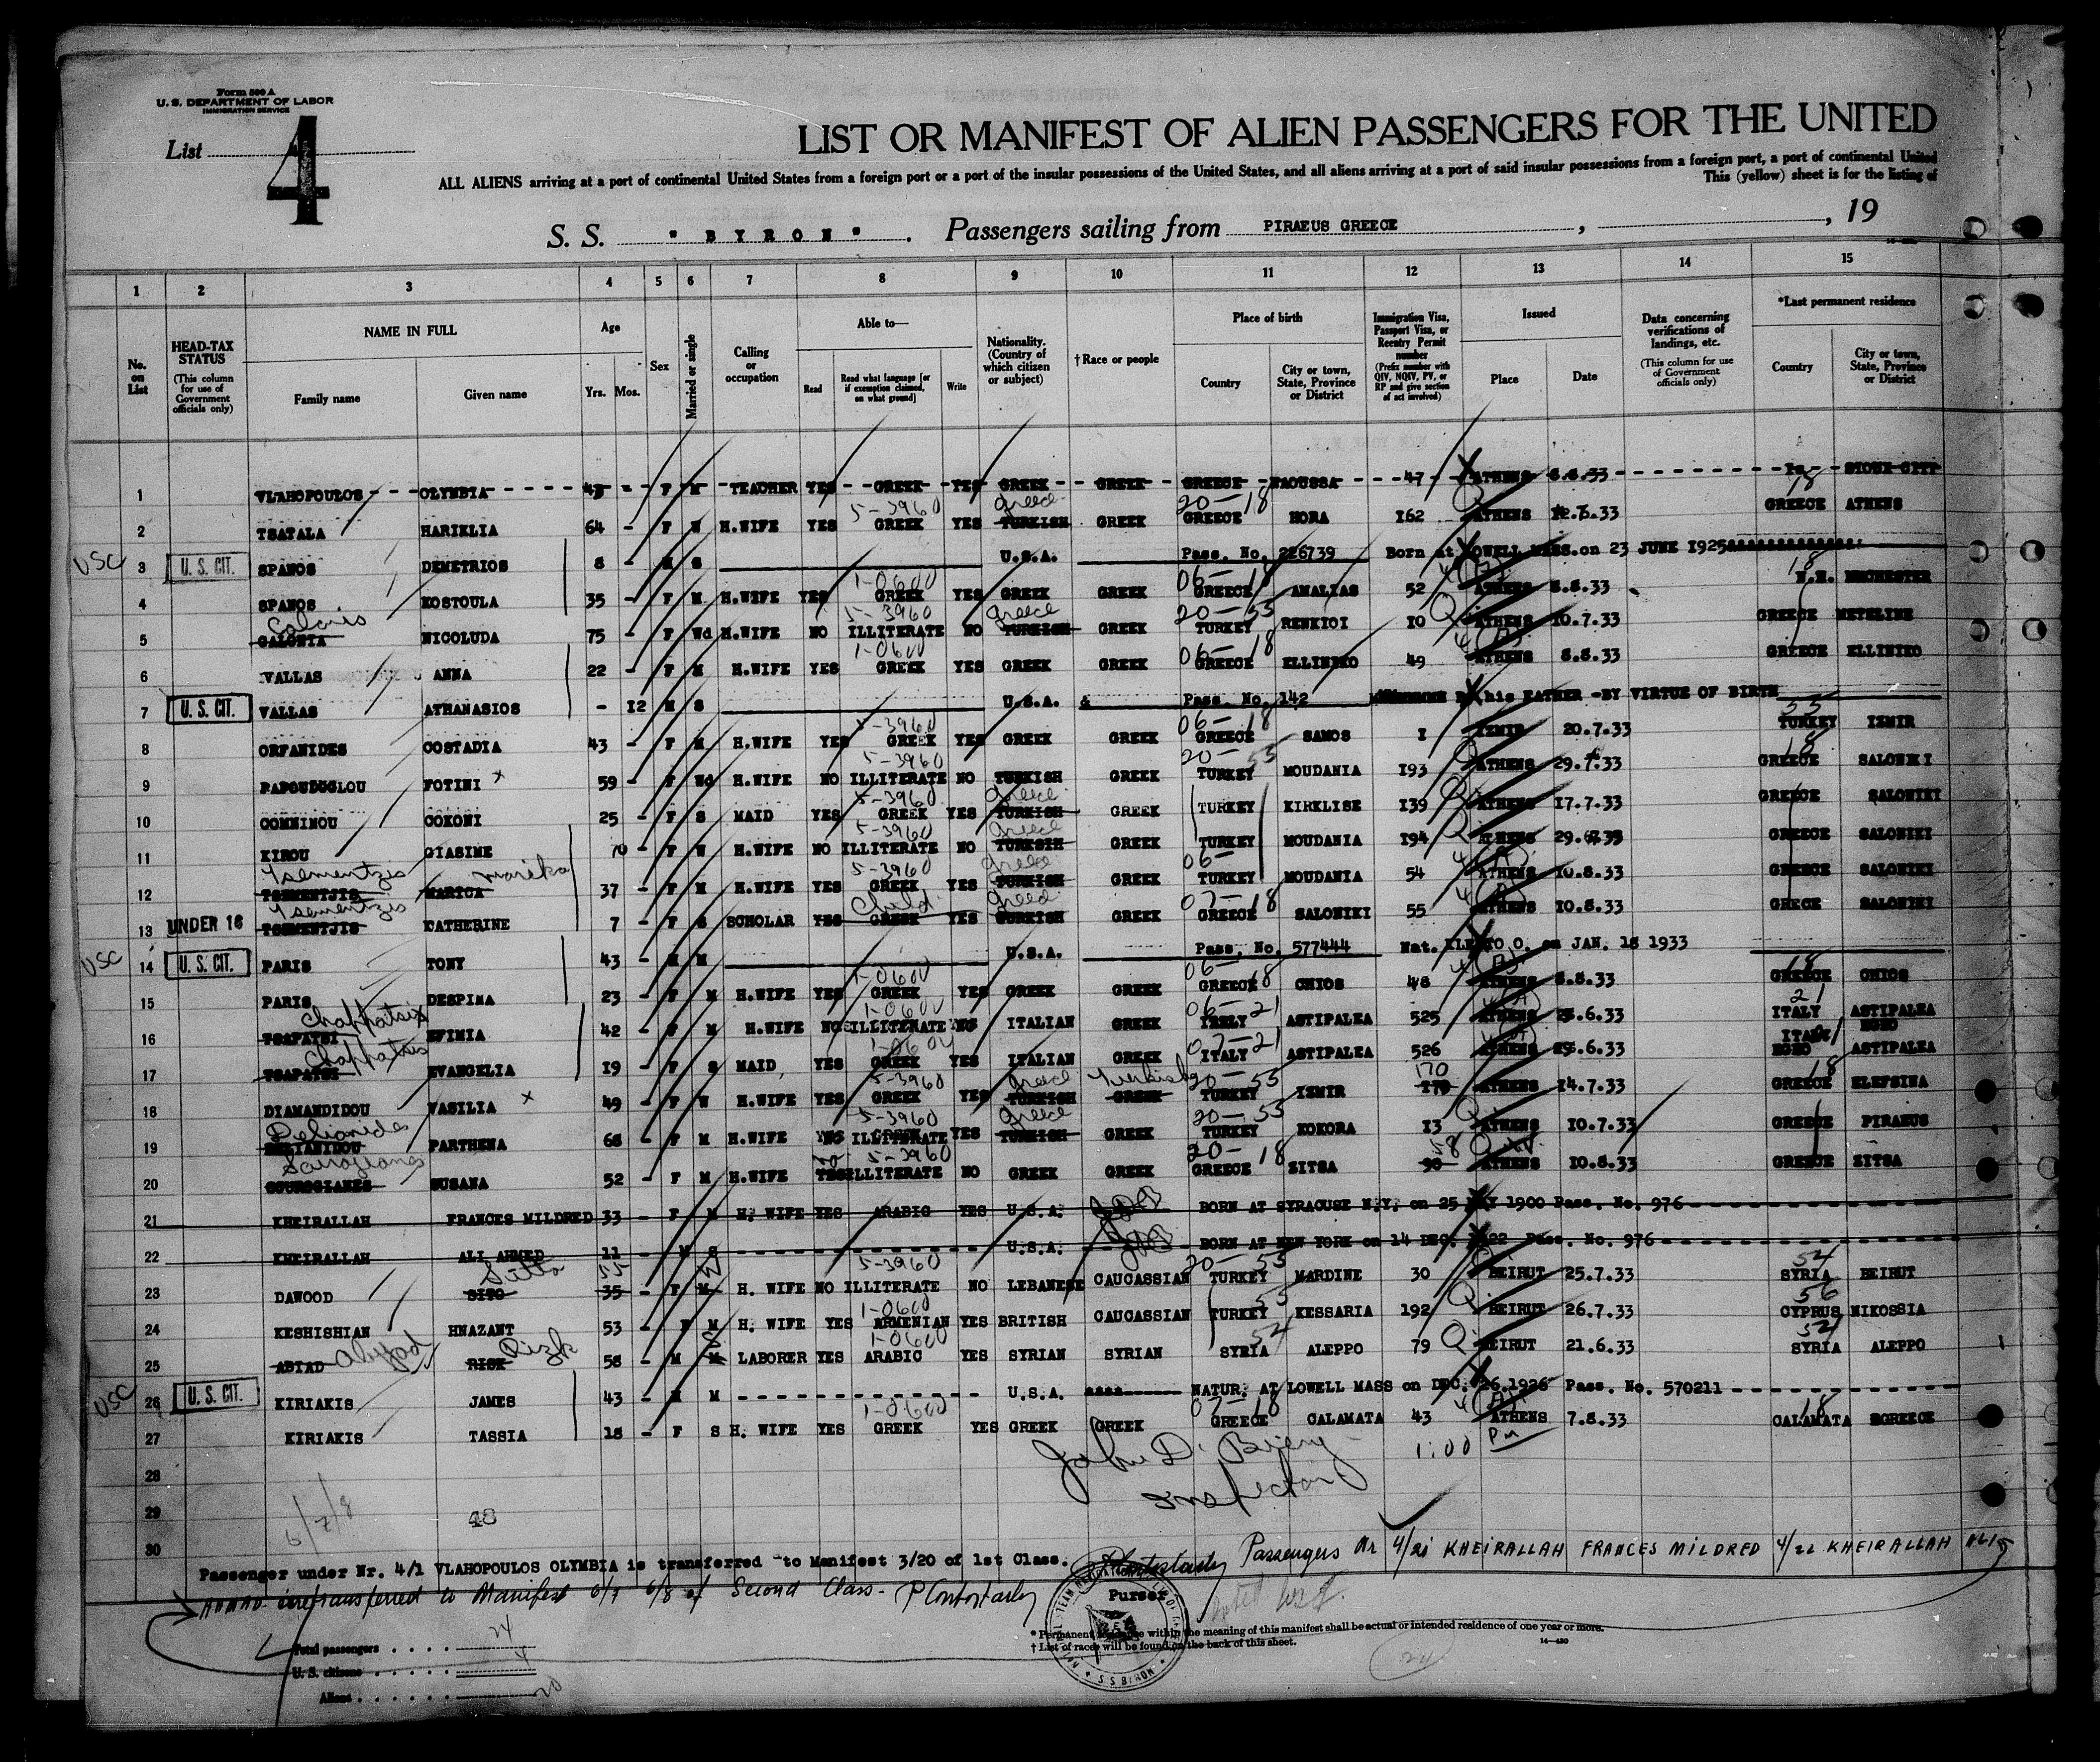 Form 500 A
U. S. DEPARTMENT OF LABOR
IMMIGRATION SERVICE
List 4
LIST OR MANIFEST OF ALIEN PASSENGERS FOR THE UNITED
ALL ALIENS arriving at a port of continental United States from a foreign port or a port of the insular possessions of the United States, and all aliens arriving at a port of said insular possessions from a foreign port, a port of continental United
This (yellow) sheet is for the listing of
S. S. "BYRON". Passengers sailing from PIRAEUS GREECE, , 19
1 2 3 4 5 6 7 8 9 10 11 12 13 14 15
No. on List
HEAD-TAX STATUS (This column for use of Government officials only)
NAME IN FULL Family name Given name
Age Yrs. Mos.
Sex
Married or single
Calling or occupation
Able to— Read Read what language [or if exemption claimed, on what ground] Write
Nationality. (Country of which citizen or subject)
† Race or people
Place of birth Country City or town, State, Province or District
Immigration Visa, Passport Visa, or Reentry Permit number (Prefix number with QIV, NQIV, PV, or RP and give section of act involved)
Issued Place Date
Data concerning verifications of landings, etc. (This column for use of Government officials only)
*Last permanent residence Country City or town, State, Province or District
1 VLAHOPOULOS OLYMBIA F M TEACHER YES GREEK YES GREEK GREEK GREECE NAOUSSA 47 ATHENS 8.8.33 SIOUX CITY
2 TSATALA HARIKLIA 64 - F W H.WIFE YES 5-3960 GREEK YES Greece TURKISH GREEK 20-18 GREECE HORA 162 ATHENS 12.7.33 18 GREECE ATHENS
USC 3 U. S. CIT. SPANOS DEMETRIOS 8 - M S U.S.A. Pass. No. 226739 Born at LOWELL MASS.on 23 JUNE 1925
4 SPANOS KOSTOULA 35 - F M H.WIFE YES 1-0600 GREEK YES GREEK GREEK 06-18 GREECE AMALIAS 52 ATHENS 8.8.33 18 N.H. MECHESTER
5 Calonis CALONIA NICOLUDA 75 - F Wd H.WIFE NO 5-3960 ILLITERATE NO Greece TURKISH GREEK 20-55 TURKEY RENKIOI 10 ATHENS 10.7.33 GREECE METELINE
6 VALLAS ANNA 22 - F M H.WIFE YES 1-0600 GREEK YES GREEK GREEK 06-18 GREECE ELLINIKO 49 ATHENS 8.8.33 GREECE ELLINIKO
7 U. S. CIT. VALLAS ATHANASIOS - 12 M S U.S.A. & Pass. No. 142 his FATHER -BY VIRTUE OF BIRTH
8 ORFANIDES COSTADIA 43 - F M H.WIFE YES 5-3960 GREEK YES GREEK GREEK 06-18 GREECE SAMOS 1 IZMIR 20.7.33 55 TURKEY IZMIR
9 PAPOUDOGLOU FOTINI x 59 - F Wd H.WIFE NO 5-3960 ILLITERATE NO TURKISH GREEK 20-55 TURKEY MOUDANIA 193 ATHENS 29.7.33 18 GREECE SALONIKI
10 COMNINOU COKONI 25 - F S MAID YES 5-3960 GREEK YES Greece TURKISH GREEK TURKEY KIRKLISE 139 ATHENS 17.7.33 GREECE SALONIKI
11 KIROU GIASIME 70 - F W H.WIFE NO 5-3960 ILLITERATE NO Greece TURKSIH GREEK TURKEY MOUDANIA 194 ATHENS GREECE SALONIKI
12 Tsementzis TSEMENTJIS Marika MARICA 37 - F M H.WIFE YES 5-3960 GREEK YES Greece TURKISH GREEK 06- TURKEY MOUDANIA 54 ATHENS 10.8.33 GREECE SALONIKI
13 UNDER 16 Tsementzis TSEMENTJIS CATHERINE 7 - F S SCHOLAR YES Child GREEK YES Greece TURKISH GREEK 07-18 GREECE SALONIKI 55 ATHENS 10.8.33 GRECE SALONIKI
USC 14 U. S. CIT. PARIS TONY 43 - M M U.S.A. Pass. No. 577444 Nat. O. on JAN. 18 1933
15 PARIS DESPINA 23 - F M H.WIFE YES 1-0600 GREEK YES GREEK GREEK 06-18 GREECE CHIOS 48 ATHENS 8.8.33 18 GREECE CHIOS
16 Chaphatsis TSAPATSI EFIMIA 42 - F M H.WIFE NO 1-0600 ILLITERATE NO ITALIAN GREEK 06-21 ITALY ASTIPALEA 525 ATHENS .6.33 21 ITALY ASTIPALEA
17 Chaphatsis TSAPATSI EVANGELIA 19 - F S MAID YES 1-0600 GREEK YES ITALIAN GREEK 07-21 ITALY ASTIPALEA 526 ATHENS .6.33 ITALY EGEO ASTIPALEA
18 DIAMANDIDOU VASILIA x 49 - F W H.WIFE YES 5-3960 GREEK YES Greece TURKISH Turkish GREEK 20-55 TURKEY IZMIR 170 170 ATHENS 14.7.33 18 GREECE ELEFSINA
19 Delianides DELIANIDOU PARTHENA 68 - F M H.WIFE NO 5-3960 ILLITERATE YES Greece TURKISH GREEK 20-55 TURKEY KOKORA 13 ATHENS 10.7.33 GREECE PIRAEUS
20 Sourogianes SOUROGIANES SUSANA 52 - F M H.WIFE no YES 5-3960 ILLITERATE NO GREEK GREEK 20-18 GREECE ZITSA 58 90 ATHENS 10.8.33 GREECE ZITSA
21 KHEIRALLAH FRANCES MILDRED 33 - F M H. WIFE YES ARABIC YES U.S.A. BORN AT SYRACUSE N.Y. on 25 MAY 1900 Pass. No. 976
22 KHEIRALLAH ALI AHMED 11 - M S U.S.A. BORN AT NEW YORK on 14 DEC. 1922 Pass. No. 976
23 DAWOOD Sitto SITO 55 35 - F M H. WIFE NO 5-3960 ILLITERATE NO LEBANESE CAUCASSIAN 20-55 TURKEY MARDINE 30 BEIRUT 25.7.33 54 SYRIA BEIRUT
24 KESHISHIAN HNAZANT 53 - F M H. WIFE YES 1-0600 ARMENIAN YES BRITISH CAUCASSIAN 55 TURKEY KESSARIA 192 BEIRUT 26.7.33 56 CYPRUS NIKOSSIA
25 ABTAD Abyad RISK Rizk 58 - M S M LABORER YES 1-0600 ARABIC YES SYRIAN SYRIAN 54 SYRIA ALEPPO 79 Q BEIRUT 21.6.33 54 SYRIA ALEPPO
USC 26 U. S. CIT. KIRIAKIS JAMES 43 - M M U.S.A. NATUR. AT LOWELL MASS on DEC. 26.1926 Pass. No. 570211
27 KIRIAKIS TASSIA 18 - F S H. WIFE YES 1-0600 GREEK YES GREEK GREEK 07-18 GREECE CALAMATA 43 ATHENS 7.8.33 18 CALAMATA GREECE
28 John D. Inspector 1:00 Pm
29 6/7/8 48
30
Passenger under Nr. 4/1 VLAHOPOULOS OLYMBIA is transferred to Manifest 3/20 of 1st Class. Passengers Nr 4/21 KHEIRALLAH FRANCES MILDRED 4/22 KHEIRALLAH ALI
AHMAD are transferred to Manifest 6/7 6/8 of Second Class - Purser
Total passengers . . . . 24
U. S. citizens . . . . . 4
Aliens . . . . . . 20
* Permanent residence within the meaning of this manifest shall be actual or intended residence of one year or more.
† List of races will be found on the back of this sheet.
14—430
24